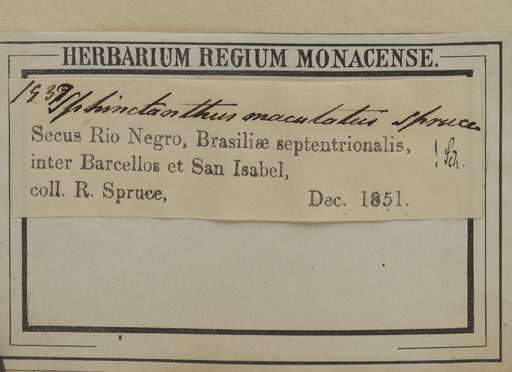 HERBARIUM REGIUM MONACENSE.
Sphinctanthus maculatus Spruce
Secus Rio Negro, Brasiliæ septentrionalis,
inter Barcellos et San Isabel,
coll. R. Spruce, Dec. 1851.
! Sch.